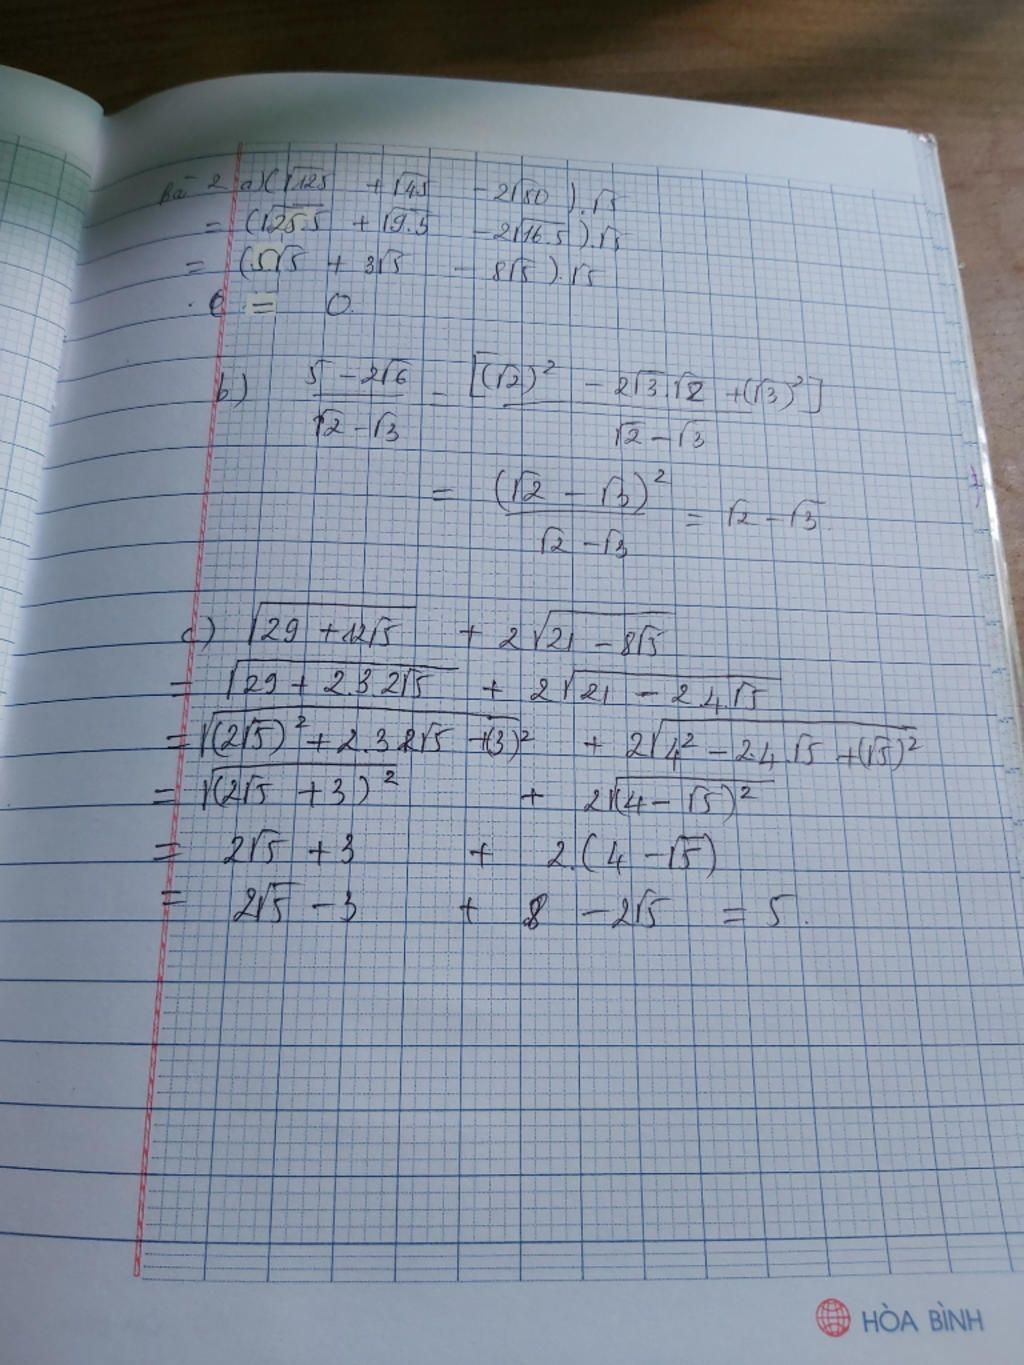 Bài 2 a) (√125 + √45 - 2√80).√5
= (√25.5 + √9.5 - 2√16.5).√5
= (5√5 + 3√5 - 8√5).√5
= 0.
b) (5 - 2√6)/(√2 - √3) = [(√2)² - 2√3.√2 + (√3)²]/(√2 - √3)
= (√2 - √3)²/(√2 - √3) = √2 - √3.
c) √(29 + 12√5) + 2√(21 - 8√5)
= √(29 + 2.3.2√5) + 2√(21 - 2.4.√5)
= √((2√5)² + 2.3.2√5 + (3)²) + 2√(4² - 2.4.√5 + (√5)²)
= √((2√5 + 3)²) + 2√((4 - √5)²)
= 2√5 + 3 + 2.(4 - √5)
= 2√5 - 3 + 8 - 2√5 = 5.
HÒA BÌNH